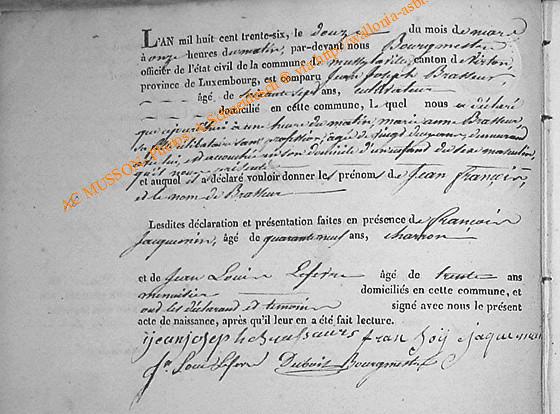 L'AN mil huit cent trente-six, le douze du mois de mars
à onze heures du matin, par-devant nous Bourgmestre
officier de l'état civil de la commune de canton de Virton,
province de Luxembourg, est comparu Jean Joseph Brasseur
âgé de soixante sept ans, cultivateur
domicilié en cette commune, lequel nous a déclaré
que aujourd'hui à une heure du matin, marie anne Brasseur,
sa fille célibataire sans profession, âgée de vingt demeurant
chez lui, est accouchée en son domicile d'un enfant du sexe masculin,
qu'il nous présente
et auquel il a déclaré vouloir donner les prénoms de Jean François,
et le nom de Brasseur
Lesdites déclaration et présentation faites en présence de François
Jacquemin, âgé de quarante neuf ans, charron
et de Jean Louis Lefevre âgé de trente ans
menuisier domiciliés en cette commune, et
ont les déclarant et témoins signé avec nous le présent
acte de naissance, après qu'il leur en a été fait lecture.
jean joseph franсois jaquemin
Jn Louis Lefevre Dubois Bourgmestre
AC MUSSON, via http://wallonia-asbl